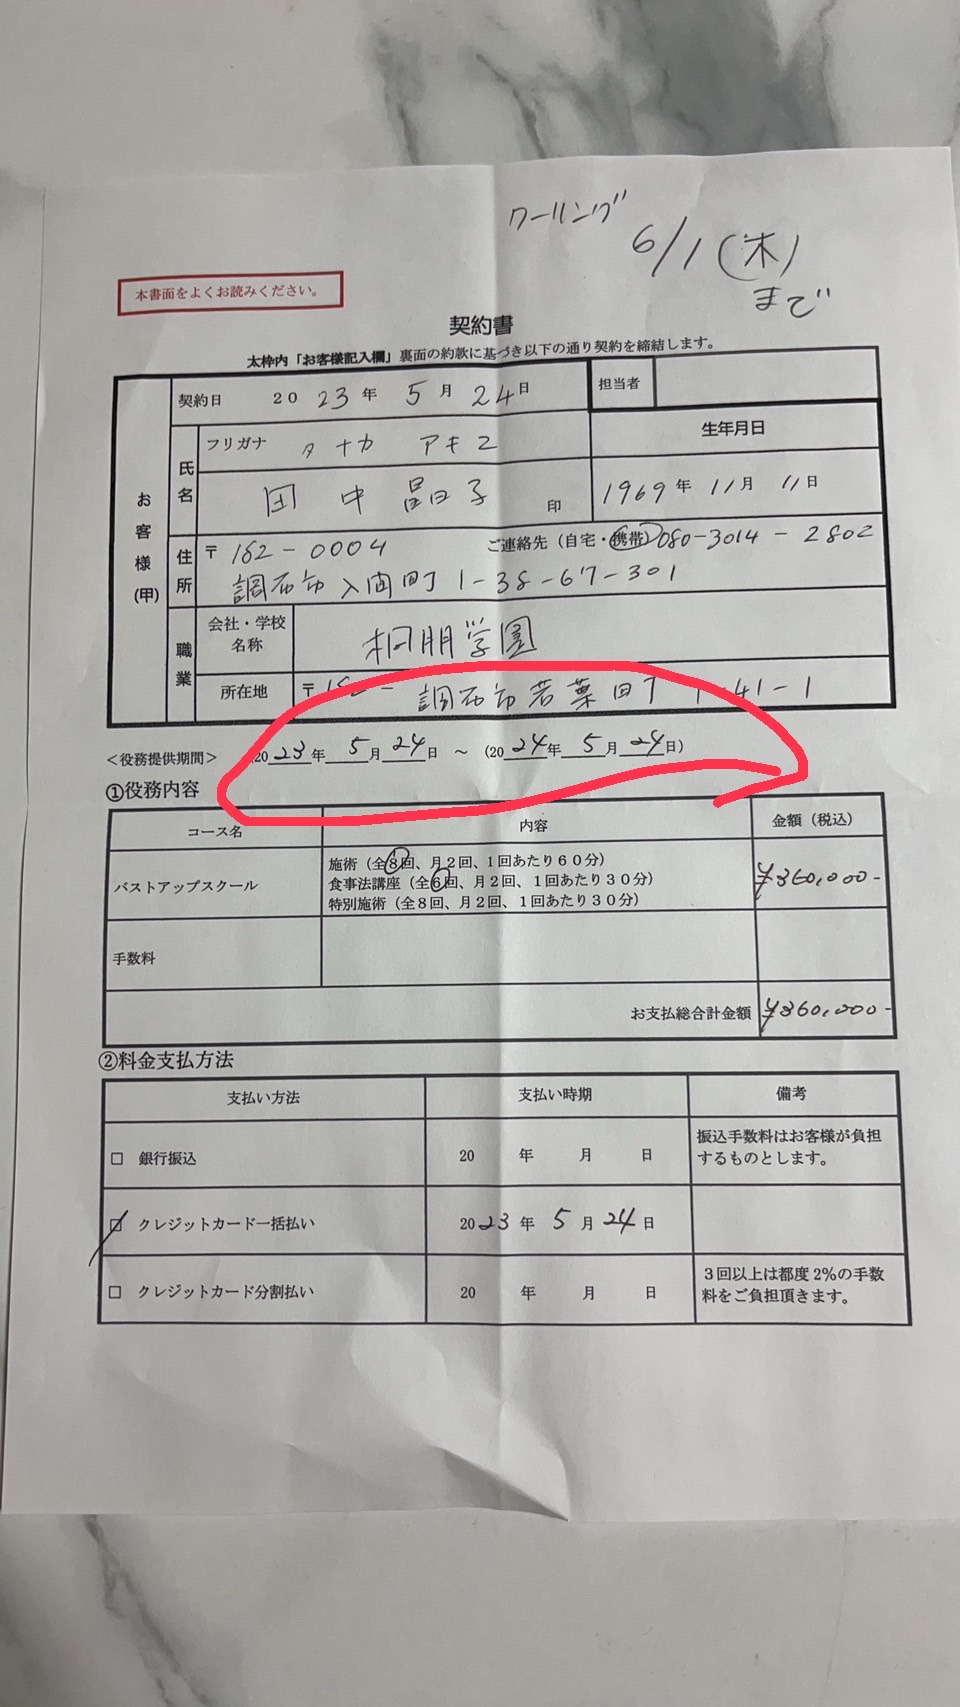 クーリング
6/1(木)
まで
本書面をよくお読みください。
契約書
太枠内「お客様記入欄」裏面の約款に基づき以下の通り契約を締結します。
お客様(甲)
契約日 2023年 5月 24日
担当者
氏名
フリガナ タナカ アキコ
生年月日
田中 昌子 印
1969年 11月 11日
住所
〒182-0004 ご連絡先(自宅・携帯)080-3014-2802
調布市入間町1-38-67-301
職業
会社・学校名称
桐朋学園
所在地 〒182- 調布市若葉町1-41-1
<役務提供期間> (2023年 5月 24日 ~ (2024年 5月 24日)
①役務内容
コース名 内容 金額(税込)
バストアップスクール
施術(全8回、月2回、1回あたり60分)
食事法講座(全6回、月2回、1回あたり30分)
特別施術(全8回、月2回、1回あたり30分)
¥360,000-
手数料
お支払総合計金額 ¥360,000-
②料金支払方法
支払い方法 支払い時期 備考
□ 銀行振込 20 年 月 日
振込手数料はお客様が負担
するものとします。
☑ クレジットカード一括払い 2023年 5月 24日
□ クレジットカード分割払い 20 年 月 日
3回以上は都度2%の手数
料をご負担頂きます。